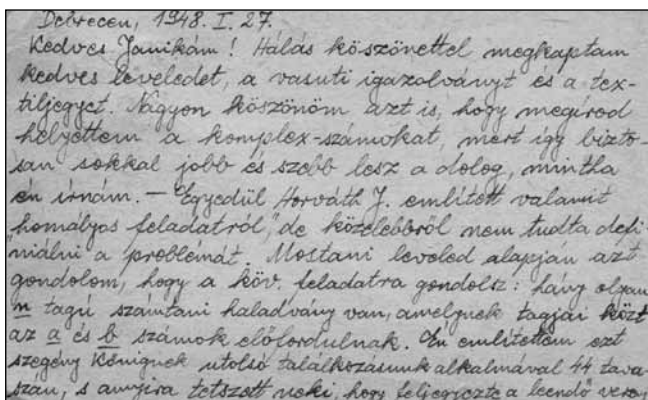 Debrecen, 1948. I. 27.
Kedves Janikám! Hálás köszönettel megkaptam
kedves leveledet, a vasuti igazolványt és a tex-
tiljegyet. Nagyon köszönöm azt is, hogy megirod
helyettem a komplex-számokat, mert így bizto-
san sokkal jobb és szebb lesz a dolog, mintha
én irnám. — Egyedül Horváth J. említett valamit
"homályos feladatról", de közelebbről nem tudta defi-
niálni a problémát. Mostani leveled alapján azt
gondolom, hogy a köv. feladatra gondolsz: hány olyan
n tagú számtani haladvány van, amelynek tagjai közt
az a és b számok előfordulnak. Én említettem ezt
szegény Kőnignek utolsó találkozásunk alkalmával 44 tava-
szán, s annyira tetszett neki, hogy feljegyezte a leendő verseny